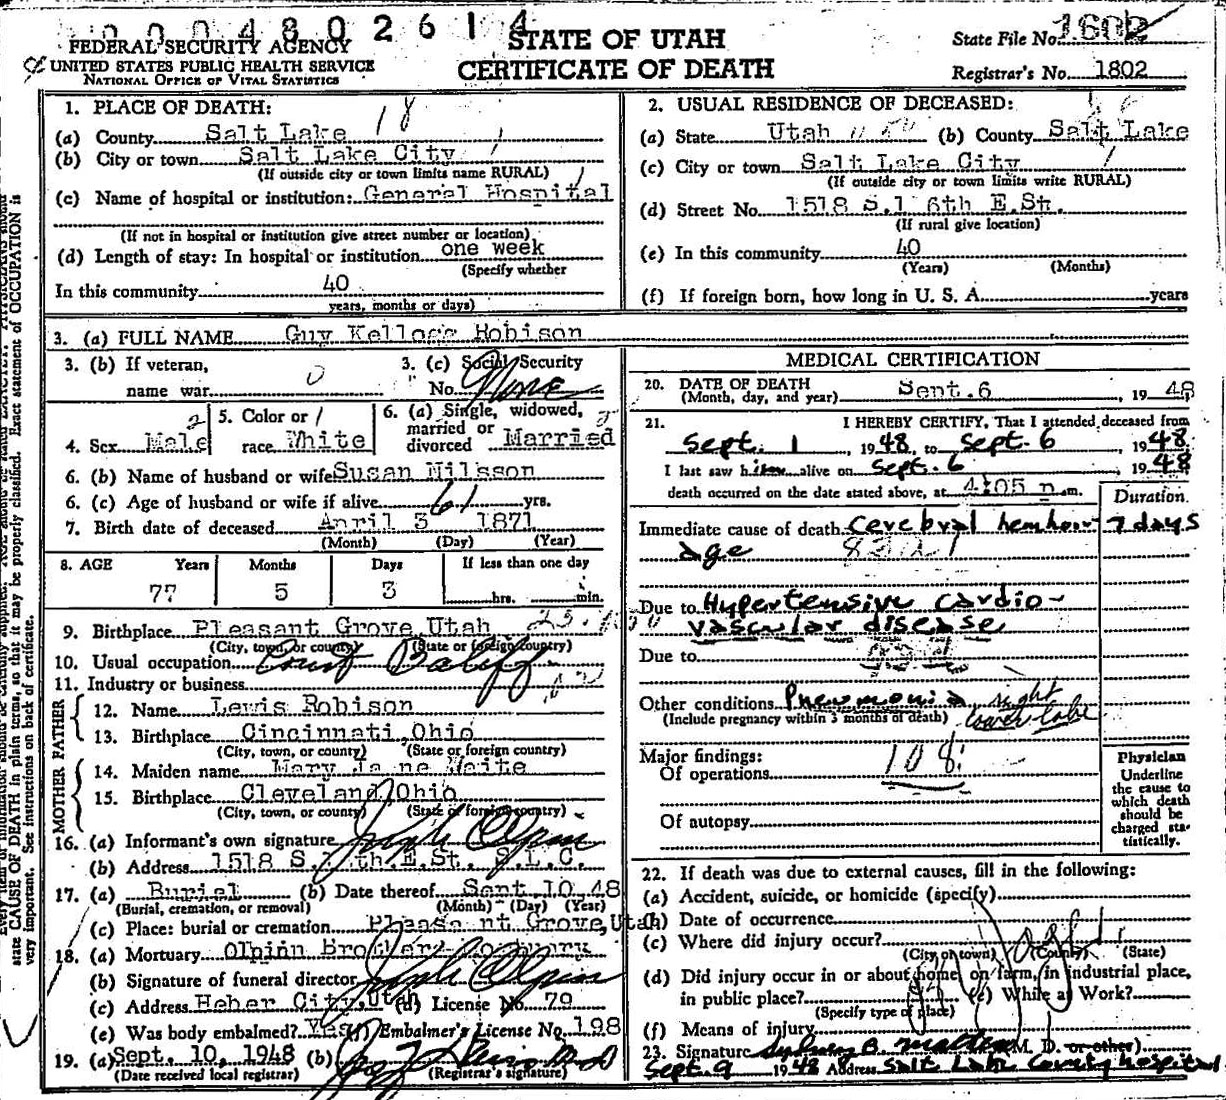 0004802614
FEDERAL SECURITY AGENCY
UNITED STATES PUBLIC HEALTH SERVICE
NATIONAL OFFICE OF VITAL STATISTICS
STATE OF UTAH
CERTIFICATE OF DEATH
State File No. 1602
Registrar's No. 1802
1. PLACE OF DEATH: 18
(a) County Salt Lake
(b) City or town Salt Lake City 1
(If outside city or town limits name RURAL)
(c) Name of hospital or institution: General Hospital
(If not in hospital or institution give street number or location)
(d) Length of stay: In hospital or institution one week
(Specify whether
In this community 40
years, months or days)
2. USUAL RESIDENCE OF DECEASED:
(a) State Utah (b) County Salt Lake
(c) City or town Salt Lake City 1
(If outside city or town limits write RURAL)
(d) Street No. 1518 S. 6th E.St.
(If rural give location)
(e) In this community 40
(Years) (Months)
(f) If foreign born, how long in U. S. A. years
3. (a) FULL NAME Guy Kellogg Robison
3. (b) If veteran,
name war 0
3. (c) Social Security
No. None
4. Sex Male 2
5. Color or /
race White
6. (a) Single, widowed, 2
married or
divorced Married
6. (b) Name of husband or wife Susan Nilsson
6. (c) Age of husband or wife if alive 61 yrs.
7. Birth date of deceased April 3 1871
(Month) (Day) (Year)
8. AGE Years Months Days If less than one day
77 5 3 hrs. min.
9. Birthplace Pleasant Grove, Utah
(City, town, or county) (State or foreign country)
10. Usual occupation Court Bailiff
11. Industry or business
FATHER
12. Name Lewis Robison
13. Birthplace Cincinnati, Ohio
(City, town, or county) (State or foreign country)
MOTHER
14. Maiden name Mary Jane Waite
15. Birthplace Cleveland, Ohio
(City, town, or county) (State or foreign country)
16. (a) Informant's own signature Joseph Olpin
(b) Address 1518 S. th.E.St. S.L.C.
17. (a) Burial (b) Date thereof Sept 10 48
(Burial, cremation, or removal) (Month) (Day) (Year)
(c) Place: burial or cremation Pleasant Grove, Utah
18. (a) Mortuary Olpin Brothers Mortuary
(b) Signature of funeral director Joseph Olpin
(c) Address Heber City, Utah (d) License No. 79
(e) Was body embalmed? Yes (f) Embalmer's License No. 198
19. (a) Sept. 10, 1948 (b)
(Date received local registrar) (Registrar's signature)
MEDICAL CERTIFICATION
20. DATE OF DEATH
(Month, day, and year) Sept.6, 1948
21. I HEREBY CERTIFY, That I attended deceased from
Sept. 1, 1948, to Sept. 6 1948.
I last saw him alive on Sept. 6 1948
death occurred on the date stated above, at 4:05 p.m.
Duration
Immediate cause of death Cerebral hemhorr- 7 days
age
Due to Hypertensive cardio-
vascular disease
Due to
Other conditions Pneumonia, right
(Include pregnancy within 3 months of death) lower lobe
Major findings:
Of operations 108
Of autopsy
Physician
Underline
the cause to
which death
should be
charged sta-
tistically.
22. If death was due to external causes, fill in the following:
(a) Accident, suicide, or homicide (specify)
(b) Date of occurrence
(c) Where did injury occur?
(City or town) (County) (State)
(d) Did injury occur in or about home, on farm, in industrial place,
in public place? (e) While at Work?
(Specify type of place)
(f) Means of injury
23. Signature Sydney B. M. D. or other)
Sept. 9 1948 Address Salt Lake County hospital
state CAUSE OF DEATH in plain terms, so that it may be properly classified. Exact statement of OCCUPATION is
very important. See instructions on back of certificate.